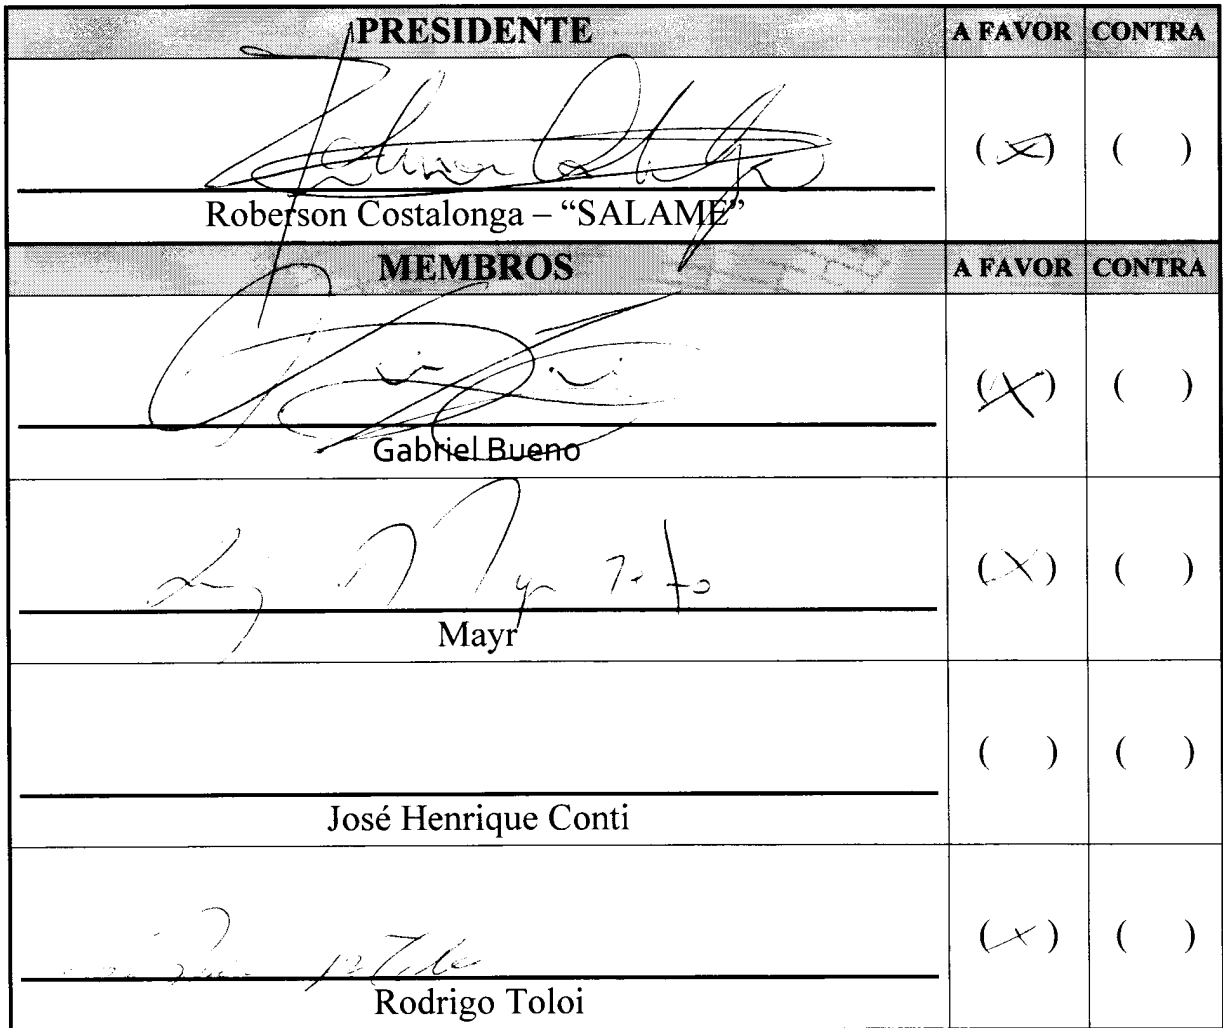 PRESIDENTE A FAVOR CONTRA
(X) ( )
Roberson Costalonga – “SALAME”
MEMBROS A FAVOR CONTRA
(X) ( )
Gabriel Bueno
(X) ( )
Mayr
( ) ( )
José Henrique Conti
(X) ( )
Rodrigo Toloi